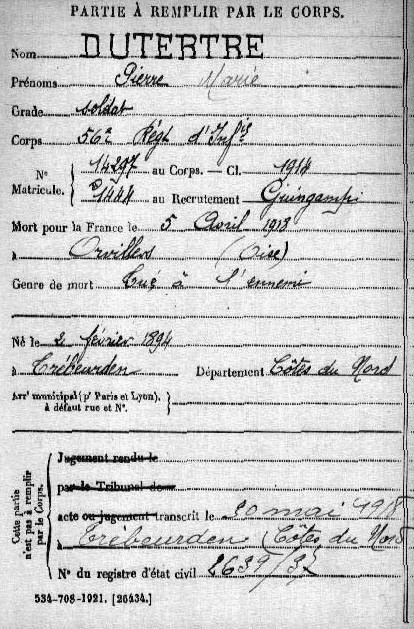 PARTIE À REMPLIR PAR LE CORPS.
Nom DUTERTRE
Prénoms Pierre Marie
Grade soldat
Corps 56e Régt d'Infie
N° Matricule. 14297 au Corps. — Cl. 1914
1444 au Recrutement Guingamp
Mort pour la France le 5 Avril 1918
à Orvillers (Oise)
Genre de mort Tué à l'ennemi
Né le 2 février 1894
à Trébeurden Département Côtes du Nord
Arrt municipal (pr Paris et Lyon),
à défaut rue et N°.
Cette partie n'est pas à remplir par le Corps.
Jugement rendu le
par le Tribunal de
acte ou jugement transcrit le 30 mai 1918
à Trébeurden (Côtes du Nord
N° du registre d'état civil 2639/37
534-708-1921. [26434.]